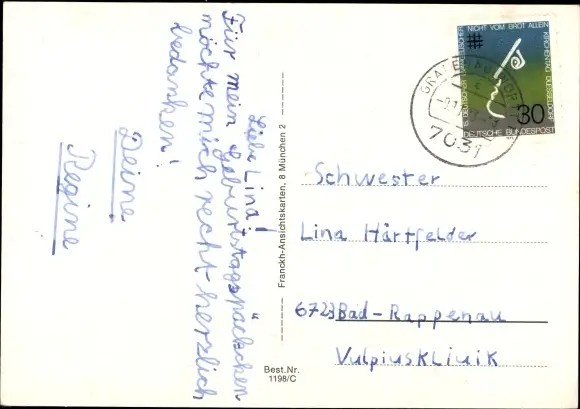 Liebe Lina!
Für mein Geburtstagspäckchen
möchte mich recht herzlich
bedanken!
Deine
Regine
Franckh-Ansichtskarten, 8 München 2
Best.Nr.
1198/C
NICHT VOM BROT ALLEIN
15. DEUTSCHER EVANGELISCHER KIRCHENTAG DÜSSELDORF
30
DEUTSCHE BUNDESPOST
7031
Schwester
Lina Härtfelder
6723 Bad-Rappenau
Vulpiusklinik